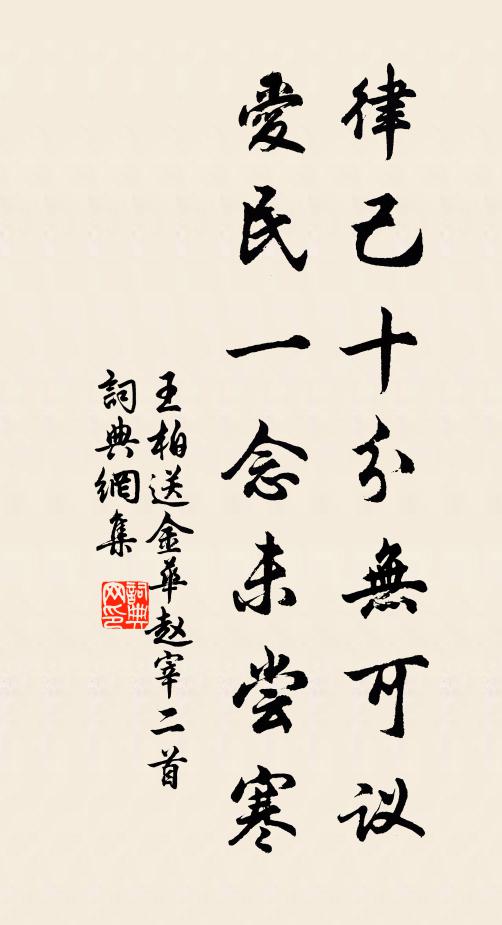 律己十分無可议
愛民一念未尝寒
王柏送金華赵宰二首
詞典網集
詞典网印